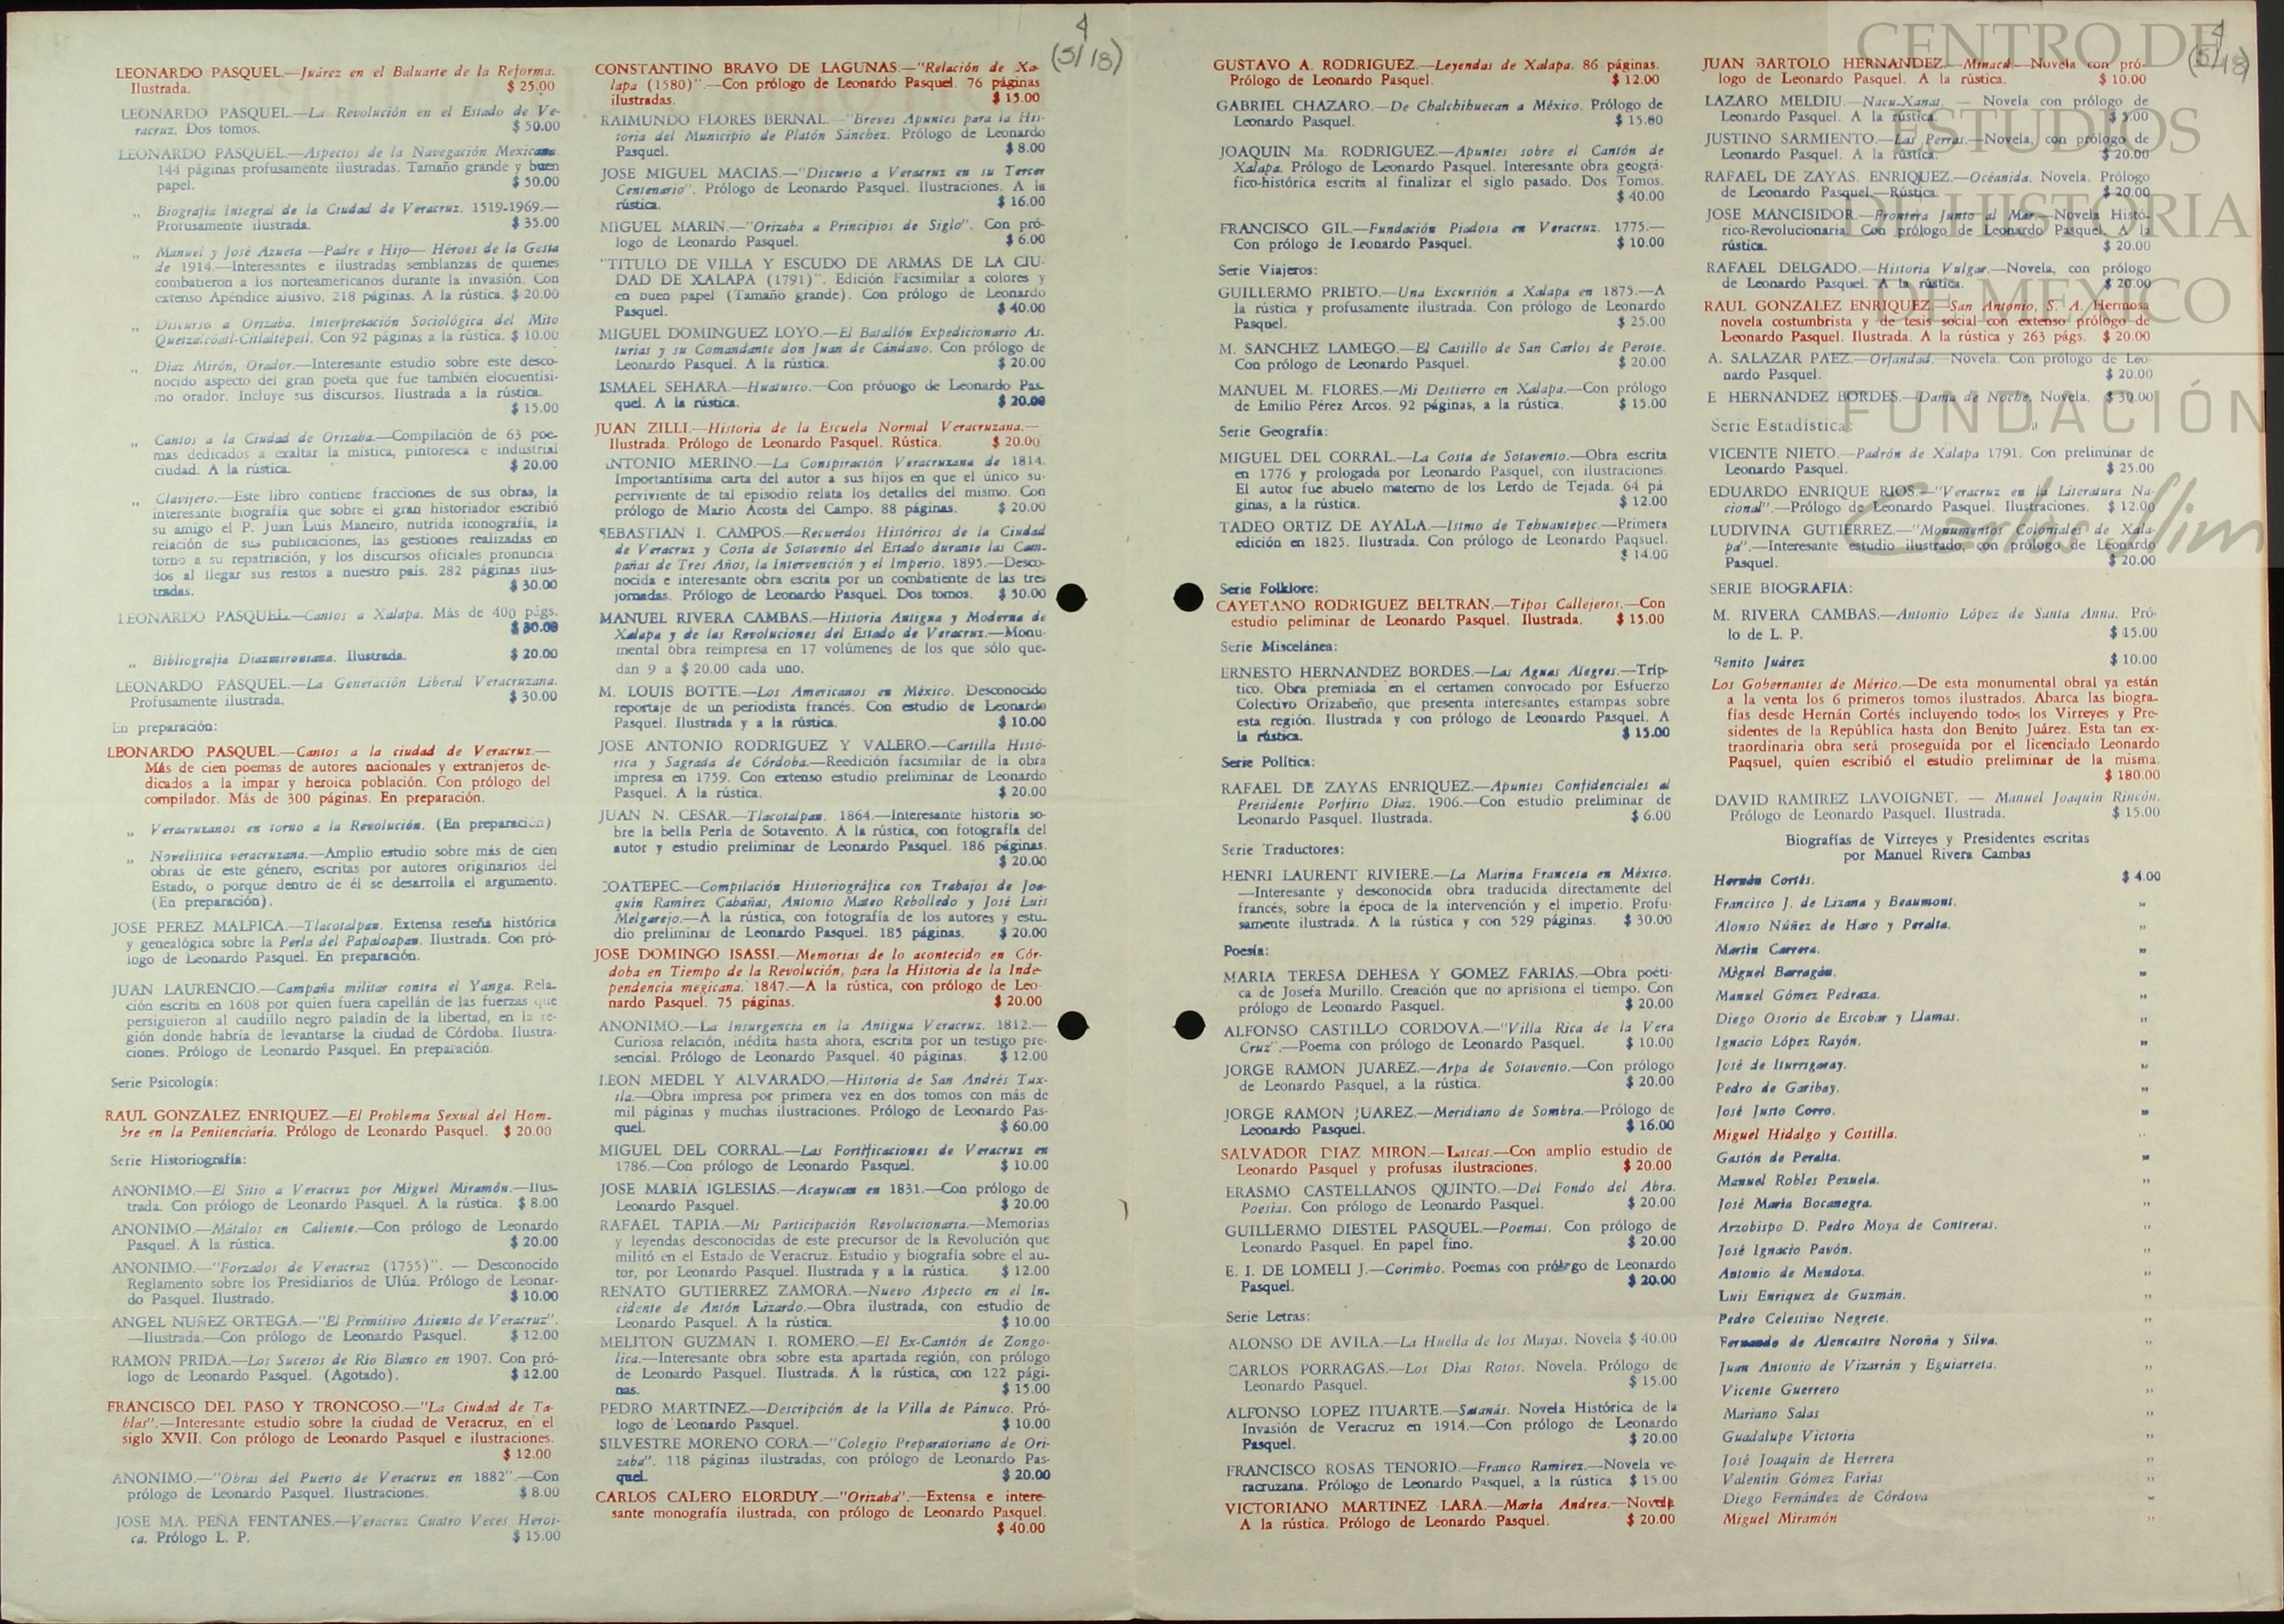 4
(5/18)
LEONARDO PASQUEL.—Juárez en el Baluarte de la Reforma.
Ilustrada. $ 25.00
LEONARDO PASQUEL.—La Revolución en el Estado de Ve-
racruz. Dos tomos. $ 50.00
LEONARDO PASQUEL.—Aspectos de la Navegación Mexicana.
144 páginas profusamente ilustradas. Tamaño grande y buen
papel. $ 50.00
„ Biografía Integral de la Ciudad de Veracruz. 1519-1969.—
Profusamente ilustrada. $ 35.00
„ Manuel y José Azueta —Padre e Hijo— Héroes de la Gesta
de 1914.—Interesantes e ilustradas semblanzas de quienes
combatieron a los norteamericanos durante la invasión. Con
extenso Apéndice alusivo. 218 páginas. A la rústica. $ 20.00
„ Discurso a Orizaba. Interpretación Sociológica del Mito
Quetzalcóatl-Citlaltépetl. Con 92 páginas a la rústica. $ 10.00
„ Díaz Mirón, Orador.—Interesante estudio sobre este desco-
nocido aspecto del gran poeta que fue también elocuentísi-
mo orador. Incluye sus discursos. Ilustrada a la rústica.
$ 15.00
„ Cantos a la Ciudad de Orizaba.—Compilación de 63 poe-
mas dedicados a exaltar la mística, pintoresca e industrial
ciudad. A la rústica. $ 20.00
„ Clavijero.—Este libro contiene fracciones de sus obras, la
interesante biografía que sobre el gran historiador escribió
su amigo el P. Juan Luis Maneiro, nutrida iconografía, la
relación de sus publicaciones, las gestiones realizadas en
torno a su repatriación, y los discursos oficiales pronuncia-
dos al llegar sus restos a nuestro país. 282 páginas ilus-
tradas. $ 30.00
LEONARDO PASQUEL.—Cantos a Xalapa. Más de 400 págs.
$ 30.00
„ Bibliografía Diazmironiana. Ilustrada. $ 20.00
LEONARDO PASQUEL.—La Generación Liberal Veracruzana.
Profusamente ilustrada. $ 30.00
En preparación:
LEONARDO PASQUEL.—Cantos a la ciudad de Veracruz.—
Más de cien poemas de autores nacionales y extranjeros de-
dicados a la impar y heroica población. Con prólogo del
compilador. Más de 300 páginas. En preparación.
„ Veracruzanos en torno a la Revolución. (En preparación)
„ Novelística veracruzana.—Amplio estudio sobre más de cien
obras de este género, escritas por autores originarios del
Estado, o porque dentro de él se desarrolla el argumento.
(En preparación).
JOSE PEREZ MALPICA.—Tlacotalpan. Extensa reseña histórica
y genealógica sobre la Perla del Papaloapan. Ilustrada. Con pró-
logo de Leonardo Pasquel. En preparación.
JUAN LAURENCIO.—Campaña militar contra el Yanga. Rela-
ción escrita en 1608 por quien fuera capellán de las fuerzas que
persiguieron al caudillo negro paladín de la libertad, en la re-
gión donde habría de levantarse la ciudad de Córdoba. Ilustra-
ciones. Prólogo de Leonardo Pasquel. En preparación.
Serie Psicología:
RAUL GONZALEZ ENRIQUEZ.—El Problema Sexual del Hom-
bre en la Penitenciaría. Prólogo de Leonardo Pasquel. $ 20.00
Serie Historiografía:
ANONIMO.—El Sitio a Veracruz por Miguel Miramón.—Ilus-
trada. Con prólogo de Leonardo Pasquel. A la rústica. $ 8.00
ANONIMO.—Mátalos en Caliente.—Con prólogo de Leonardo
Pasquel. A la rústica. $ 20.00
ANONIMO.—"Forzados de Veracruz (1755)". — Desconocido
Reglamento sobre los Presidiarios de Ulúa. Prólogo de Leonar-
do Pasquel. Ilustrado. $ 10.00
ANGEL NUÑEZ ORTEGA.—"El Primitivo Asiento de Veracruz".
—Ilustrada.—Con prólogo de Leonardo Pasquel. $ 12.00
RAMON PRIDA.—Los Sucesos de Río Blanco en 1907. Con pró-
logo de Leonardo Pasquel. (Agotado). $ 12.00
FRANCISCO DEL PASO Y TRONCOSO.—"La Ciudad de Ta-
blas".—Interesante estudio sobre la ciudad de Veracruz, en el
siglo XVII. Con prólogo de Leonardo Pasquel e ilustraciones.
$ 12.00
ANONIMO.—"Obras del Puerto de Veracruz en 1882".—Con
prólogo de Leonardo Pasquel. Ilustraciones. $ 8.00
JOSE MA. PEÑA FENTANES.—Veracruz Cuatro Veces Heroi-
ca. Prólogo L. P. $ 15.00
CONSTANTINO BRAVO DE LAGUNAS.—"Relación de Xa-
lapa (1580)".—Con prólogo de Leonardo Pasquel. 76 páginas
ilustradas. $ 15.00
RAIMUNDO FLORES BERNAL.—"Breves Apuntes para la His-
toria del Municipio de Platón Sánchez. Prólogo de Leonardo
Pasquel. $ 8.00
JOSE MIGUEL MACIAS.—"Discurso a Veracruz en su Tercer
Centenario". Prólogo de Leonardo Pasquel. Ilustraciones. A la
rústica. $ 16.00
MIGUEL MARIN.—"Orizaba a Principios de Siglo". Con pró-
logo de Leonardo Pasquel. $ 6.00
"TITULO DE VILLA Y ESCUDO DE ARMAS DE LA CIU-
DAD DE XALAPA (1791)". Edición Facsimilar a colores y
en buen papel (Tamaño grande). Con prólogo de Leonardo
Pasquel. $ 40.00
MIGUEL DOMINGUEZ LOYO.—El Batallón Expedicionario As-
turias y su Comandante don Juan de Cándano. Con prólogo de
Leonardo Pasquel. A la rústica. $ 20.00
ISMAEL SEHARA.—Huatusco.—Con próuogo de Leonardo Pas-
quel. A la rústica. $ 20.00
JUAN ZILLI.—Historia de la Escuela Normal Veracruzana.—
Ilustrada. Prólogo de Leonardo Pasquel. Rústica. $ 20.00
ANTONIO MERINO.—La Conspiración Veracruzana de 1814.
Importantísima carta del autor a sus hijos en que el único su-
perviviente de tal episodio relata los detalles del mismo. Con
prólogo de Mario Acosta del Campo. 88 páginas. $ 20.00
SEBASTIAN I. CAMPOS.—Recuerdos Históricos de la Ciudad
de Veracruz y Costa de Sotavento del Estado durante las Cam-
pañas de Tres Años, la Intervención y el Imperio. 1895.—Desco-
nocida e interesante obra escrita por un combatiente de las tres
jornadas. Prólogo de Leonardo Pasquel. Dos tomos. $ 50.00
MANUEL RIVERA CAMBAS.—Historia Antigua y Moderna de
Xalapa y de las Revoluciones del Estado de Veracruz.—Monu-
mental obra reimpresa en 17 volúmenes de los que sólo que-
dan 9 a $ 20.00 cada uno.
M. LOUIS BOTTE.—Los Americanos en México. Desconocido
reportaje de un periodista francés. Con estudio de Leonardo
Pasquel. Ilustrada y a la rústica. $ 10.00
JOSE ANTONIO RODRIGUEZ Y VALERO.—Cartilla Histó-
rica y Sagrada de Córdoba.—Reedición facsimilar de la obra
impresa en 1759. Con extenso estudio preliminar de Leonardo
Pasquel. A la rústica. $ 20.00
JUAN N. CESAR.—Tlacotalpan. 1864.—Interesante historia so-
bre la bella Perla de Sotavento. A la rústica, con fotografía del
autor y estudio preliminar de Leonardo Pasquel. 186 páginas.
$ 20.00
COATEPEC.—Compilación Historiográfica con Trabajos de Joa-
quín Ramírez Cabañas, Antonio Mateo Rebolledo y José Luis
Melgarejo.—A la rústica, con fotografía de los autores y estu-
dio preliminar de Leonardo Pasquel. 185 páginas. $ 20.00
JOSE DOMINGO ISASSI.—Memorias de lo acontecido en Cór-
doba en Tiempo de la Revolución, para la Historia de la Inde-
pendencia megicana. 1847.—A la rústica, con prólogo de Leo-
nardo Pasquel. 75 páginas. $ 20.00
ANONIMO.—La Insurgencia en la Antigua Veracruz. 1812.—
Curiosa relación, inédita hasta ahora, escrita por un testigo pre-
sencial. Prólogo de Leonardo Pasquel. 40 páginas. $ 12.00
LEON MEDEL Y ALVARADO.—Historia de San Andrés Tux-
tla.—Obra impresa por primera vez en dos tomos con más de
mil páginas y muchas ilustraciones. Prólogo de Leonardo Pas-
quel. $ 60.00
MIGUEL DEL CORRAL.—Las Fortificaciones de Veracruz en
1786.—Con prólogo de Leonardo Pasquel. $ 10.00
JOSE MARIA IGLESIAS.—Acayucan en 1831.—Con prólogo de
Leonardo Pasquel. $ 20.00
RAFAEL TAPIA.—Mi Participación Revolucionaria.—Memorias
y leyendas desconocidas de este precursor de la Revolución que
militó en el Estado de Veracruz. Estudio y biografía sobre el au-
tor, por Leonardo Pasquel. Ilustrada y a la rústica. $ 12.00
RENATO GUTIERREZ ZAMORA.—Nuevo Aspecto en el In-
cidente de Antón Lizardo.—Obra ilustrada, con estudio de
Leonardo Pasquel. A la rústica. $ 10.00
MELITON GUZMAN I. ROMERO.—El Ex-Cantón de Zongo-
lica.—Interesante obra sobre esta apartada región, con prólogo
de Leonardo Pasquel. Ilustrada. A la rústica, con 122 pági-
nas. $ 15.00
PEDRO MARTINEZ.—Descripción de la Villa de Pánuco. Pró-
logo de Leonardo Pasquel. $ 10.00
SILVESTRE MORENO CORA.—"Colegio Preparatoriano de Ori-
zaba". 118 páginas ilustradas, con prólogo de Leonardo Pas-
quel. $ 20.00
CARLOS CALERO ELORDUY.—"Orizaba".—Extensa e intere-
sante monografía ilustrada, con prólogo de Leonardo Pasquel.
$ 40.00
GUSTAVO A. RODRIGUEZ.—Leyendas de Xalapa. 86 páginas.
Prólogo de Leonardo Pasquel. $ 12.00
GABRIEL CHAZARO.—De Chalchihuecan a México. Prólogo de
Leonardo Pasquel. $ 15.80
JOAQUIN Ma. RODRIGUEZ.—Apuntes sobre el Cantón de
Xalapa. Prólogo de Leonardo Pasquel. Interesante obra geográ-
fico-histórica escrita al finalizar el siglo pasado. Dos Tomos.
$ 40.00
FRANCISCO GIL.—Fundación Piadosa en Veracruz. 1775.—
Con prólogo de Leonardo Pasquel. $ 10.00
Serie Viajeros:
GUILLERMO PRIETO.—Una Excursión a Xalapa en 1875.—A
la rústica y profusamente ilustrada. Con prólogo de Leonardo
Pasquel. $ 25.00
M. SANCHEZ LAMEGO.—El Castillo de San Carlos de Perote.
Con prólogo de Leonardo Pasquel. $ 20.00
MANUEL M. FLORES.—Mi Destierro en Xalapa.—Con prólogo
de Emilio Pérez Arcos. 92 páginas, a la rústica. $ 15.00
Serie Geografía:
MIGUEL DEL CORRAL.—La Costa de Sotavento.—Obra escrita
en 1776 y prologada por Leonardo Pasquel, con ilustraciones.
El autor fue abuelo materno de los Lerdo de Tejada. 64 pá
ginas, a la rústica. $ 12.00
TADEO ORTIZ DE AYALA.—Istmo de Tehuantepec.—Primera
edición en 1825. Ilustrada. Con prólogo de Leonardo Paqsuel.
$ 14.00
Serie Folklore:
CAYETANO RODRIGUEZ BELTRAN.—Tipos Callejeros.—Con
estudio peliminar de Leonardo Pasquel. Ilustrada. $ 15.00
Serie Miscelánea:
ERNESTO HERNANDEZ BORDES.—Las Aguas Alegres.—Tríp-
tico. Obra premiada en el certamen convocado por Esfuerzo
Colectivo Orizabeño, que presenta interesantes estampas sobre
esta región. Ilustrada y con prólogo de Leonardo Pasquel. A
la rústica. $ 15.00
Serie Política:
RAFAEL DE ZAYAS ENRIQUEZ.—Apuntes Confidenciales al
Presidente Porfirio Díaz. 1906.—Con estudio preliminar de
Leonardo Pasquel. Ilustrada. $ 6.00
Serie Traductores:
HENRI LAURENT RIVIERE.—La Marina Francesa en México.
—Interesante y desconocida obra traducida directamente del
francés, sobre la época de la intervención y el imperio. Profu-
samente ilustrada. A la rústica y con 529 páginas. $ 30.00
Poesía:
MARIA TERESA DEHESA Y GOMEZ FARIAS.—Obra poéti-
ca de Josefa Murillo. Creación que no aprisiona el tiempo. Con
prólogo de Leonardo Pasquel. $ 20.00
ALFONSO CASTILLO CORDOVA.—"Villa Rica de la Vera
Cruz".—Poema con prólogo de Leonardo Pasquel. $ 10.00
JORGE RAMON JUAREZ.—Arpa de Sotavento.—Con prólogo
de Leonardo Pasquel, a la rústica. $ 20.00
JORGE RAMON JUAREZ.—Meridiano de Sombra.—Prólogo de
Leonardo Pasquel. $ 16.00
SALVADOR DIAZ MIRON.—Lascas.—Con amplio estudio de
Leonardo Pasquel y profusas ilustraciones. $ 20.00
ERASMO CASTELLANOS QUINTO.—Del Fondo del Abra.
Poesías. Con prólogo de Leonardo Pasquel. $ 20.00
GUILLERMO DIESTEL PASQUEL.—Poemas. Con prólogo de
Leonardo Pasquel. En papel fino. $ 20.00
E. I. DE LOMELI J.—Corimbo. Poemas con prólogo de Leonardo
Pasquel. $ 20.00
Serie Letras:
ALONSO DE AVILA.—La Huella de los Mayas. Novela $ 40.00
CARLOS PORRAGAS.—Los Días Rotos. Novela. Prólogo de
Leonardo Pasquel. $ 15.00
ALFONSO LOPEZ ITUARTE.—Satanás. Novela Histórica de la
Invasión de Veracruz en 1914.—Con prólogo de Leonardo
Pasquel. $ 20.00
FRANCISCO ROSAS TENORIO.—Franco Ramírez.—Novela ve-
racruzana. Prólogo de Leonardo Pasquel, a la rústica $ 15.00
VICTORIANO MARTINEZ LARA.—María Andrea.—Novela
A la rústica. Prólogo de Leonardo Pasquel. $ 20.00
4
(5/18)
JUAN BARTOLO HERNANDEZ.—Minacá.—Novela con pró-
logo de Leonardo Pasquel. A la rústica. $ 10.00
LAZARO MELDIU.—Nacu-Xanat. — Novela con prólogo de
Leonardo Pasquel. A la rústica. $ 5.00
JUSTINO SARMIENTO.—Las Perras.—Novela, con prólogo de
Leonardo Pasquel. A la rústica. $ 20.00
RAFAEL DE ZAYAS. ENRIQUEZ.—Océanida. Novela. Prólogo
de Leonardo Pasquel.—Rústica. $ 20.00
JOSE MANCISIDOR.—Frontera Junto al Mar.—Novela Histó-
rico-Revolucionaria. Con prólogo de Leonardo Pasquel. A la
rústica. $ 20.00
RAFAEL DELGADO.—Historia Vulgar.—Novela, con prólogo
de Leonardo Pasquel. A la rústica. $ 20.00
RAUL GONZALEZ ENRIQUEZ.—San Antonio, S. A. Hermosa
novela costumbrista y de tesis social con extenso prólogo de
Leonardo Pasquel. Ilustrada. A la rústica y 263 págs. $ 20.00
A. SALAZAR PAEZ.—Orfandad.—Novela. Con prólogo de Leo-
nardo Pasquel. $ 20.00
E HERNANDEZ BORDES.—Dama de Noche. Novela. $ 30.00
Serie Estadística:
VICENTE NIETO.—Padrón de Xalapa 1791. Con preliminar de
Leonardo Pasquel. $ 25.00
EDUARDO ENRIQUE RIOS.—"Veracruz en la Literatura Na-
cional".—Prólogo de Leonardo Pasquel. Ilustraciones. $ 12.00
LUDIVINA GUTIERREZ.—"Monumentos Coloniales de Xala-
pa".—Interesante estudio ilustrado, con prólogo de Leonardo
Pasquel. $ 20.00
SERIE BIOGRAFIA:
M. RIVERA CAMBAS.—Antonio López de Santa Anna. Pró-
lo de L. P. $ 15.00
Benito Juárez $ 10.00
Los Gobernantes de Mérico.—De esta monumental obral ya están
a la venta los 6 primeros tomos ilustrados. Abarca las biogra-
fías desde Hernán Cortés incluyendo todos los Virreyes y Pre-
sidentes de la República hasta don Benito Juárez. Esta tan ex-
traordinaria obra será proseguida por el licenciado Leonardo
Paqsuel, quien escribió el estudio preliminar de la misma.
$ 180.00
DAVID RAMIREZ LAVOIGNET. — Manuel Joaquín Rincón.
Prólogo de Leonardo Pasquel. Ilustrada. $ 15.00
Biografías de Virreyes y Presidentes escritas
por Manuel Rivera Cambas
Hernán Cortés. $ 4.00
Francisco J. de Lizana y Beaumont. „
Alonso Núñez de Haro y Peralta. „
Martín Carrera. „
Miguel Barragán. „
Manuel Gómez Pedraza. „
Diego Osorio de Escobar y Llamas. „
Ignacio López Rayón. „
José de Iturrigaray. „
Pedro de Garibay. „
José Justo Corro. „
Miguel Hidalgo y Costilla. „
Gastón de Peralta. „
Manuel Robles Pezuela. „
José María Bocanegra. „
Arzobispo D. Pedro Moya de Contreras. „
José Ignacio Pavón. „
Antonio de Mendoza. „
Luis Enríquez de Guzmán. „
Pedro Celestino Negrete. „
Fernando de Alencastre Noroña y Silva. „
Juan Antonio de Vizarrán y Eguiarreta. „
Vicente Guerrero „
Mariano Salas „
Guadalupe Victoria „
José Joaquín de Herrera „
Valentín Gómez Farías „
Diego Fernández de Córdova „
Miguel Miramón „
CENTRO DE
ESTUDIOS
DE HISTORIA
DE MEXICO
FUNDACIÓN
Carlos Slim